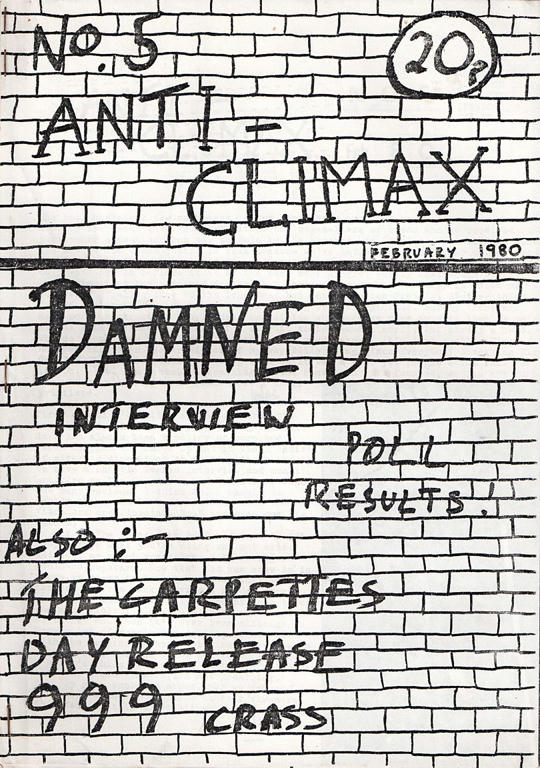 No. 5
20p
ANTI-
CLIMAX
FEBRUARY 1980
DAMNED
INTERVIEW
POLL
RESULTS!
ALSO :-
THE CARPETTES
DAY RELEASE
999 CRASS